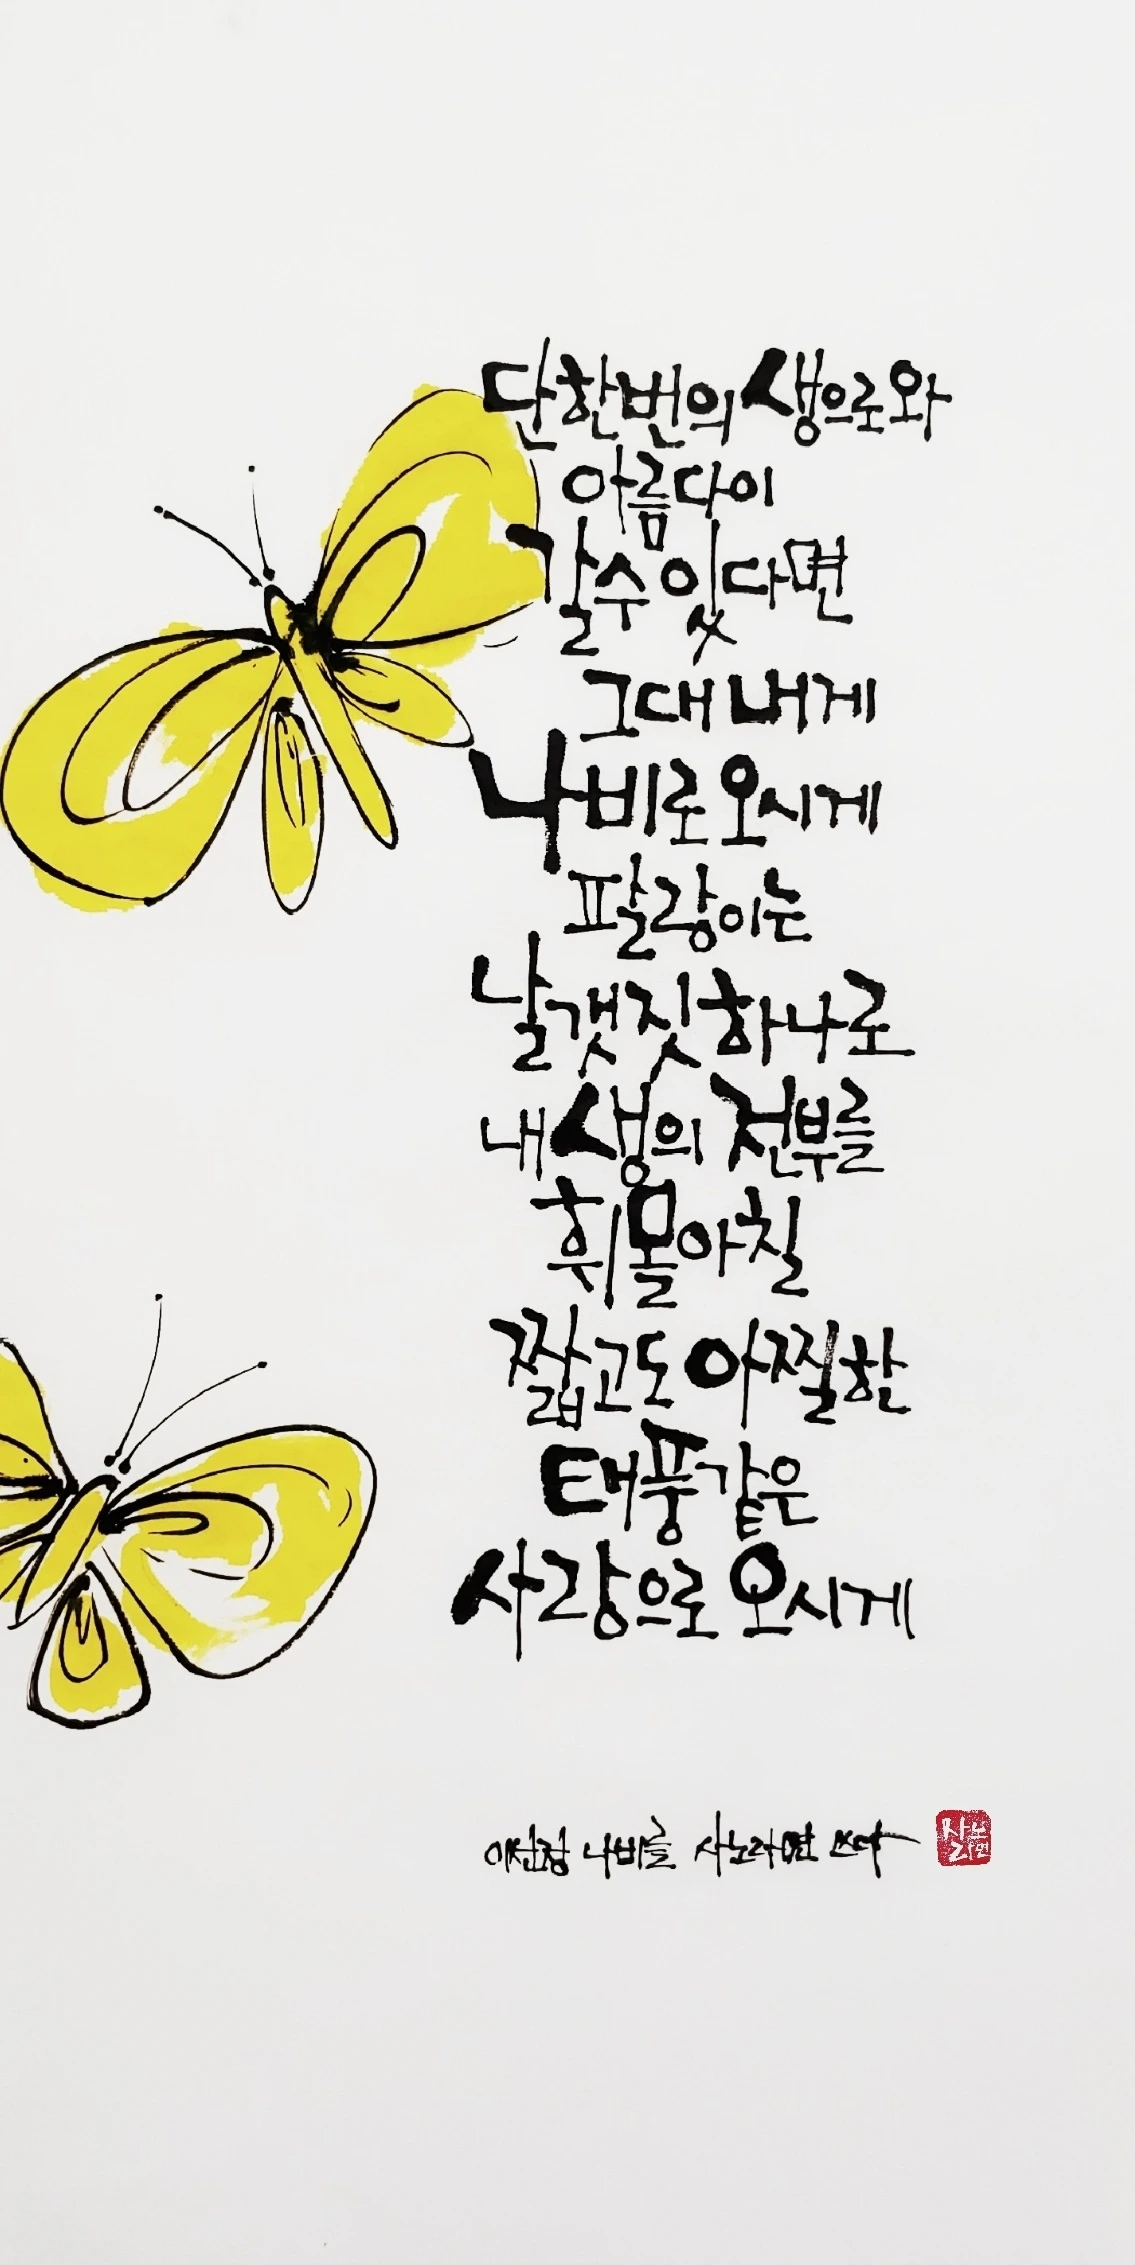 단 한번의 생으로 와
아름다이
갈 수 있다면
그대 내게
나비로 오시게
팔랑이는
날갯짓 하나로
내 생의 전부를
휘몰아칠
짧고도 아찔한
태풍같은
사랑으로 오시게
나비를 사노라면 쓰다
사노
라면